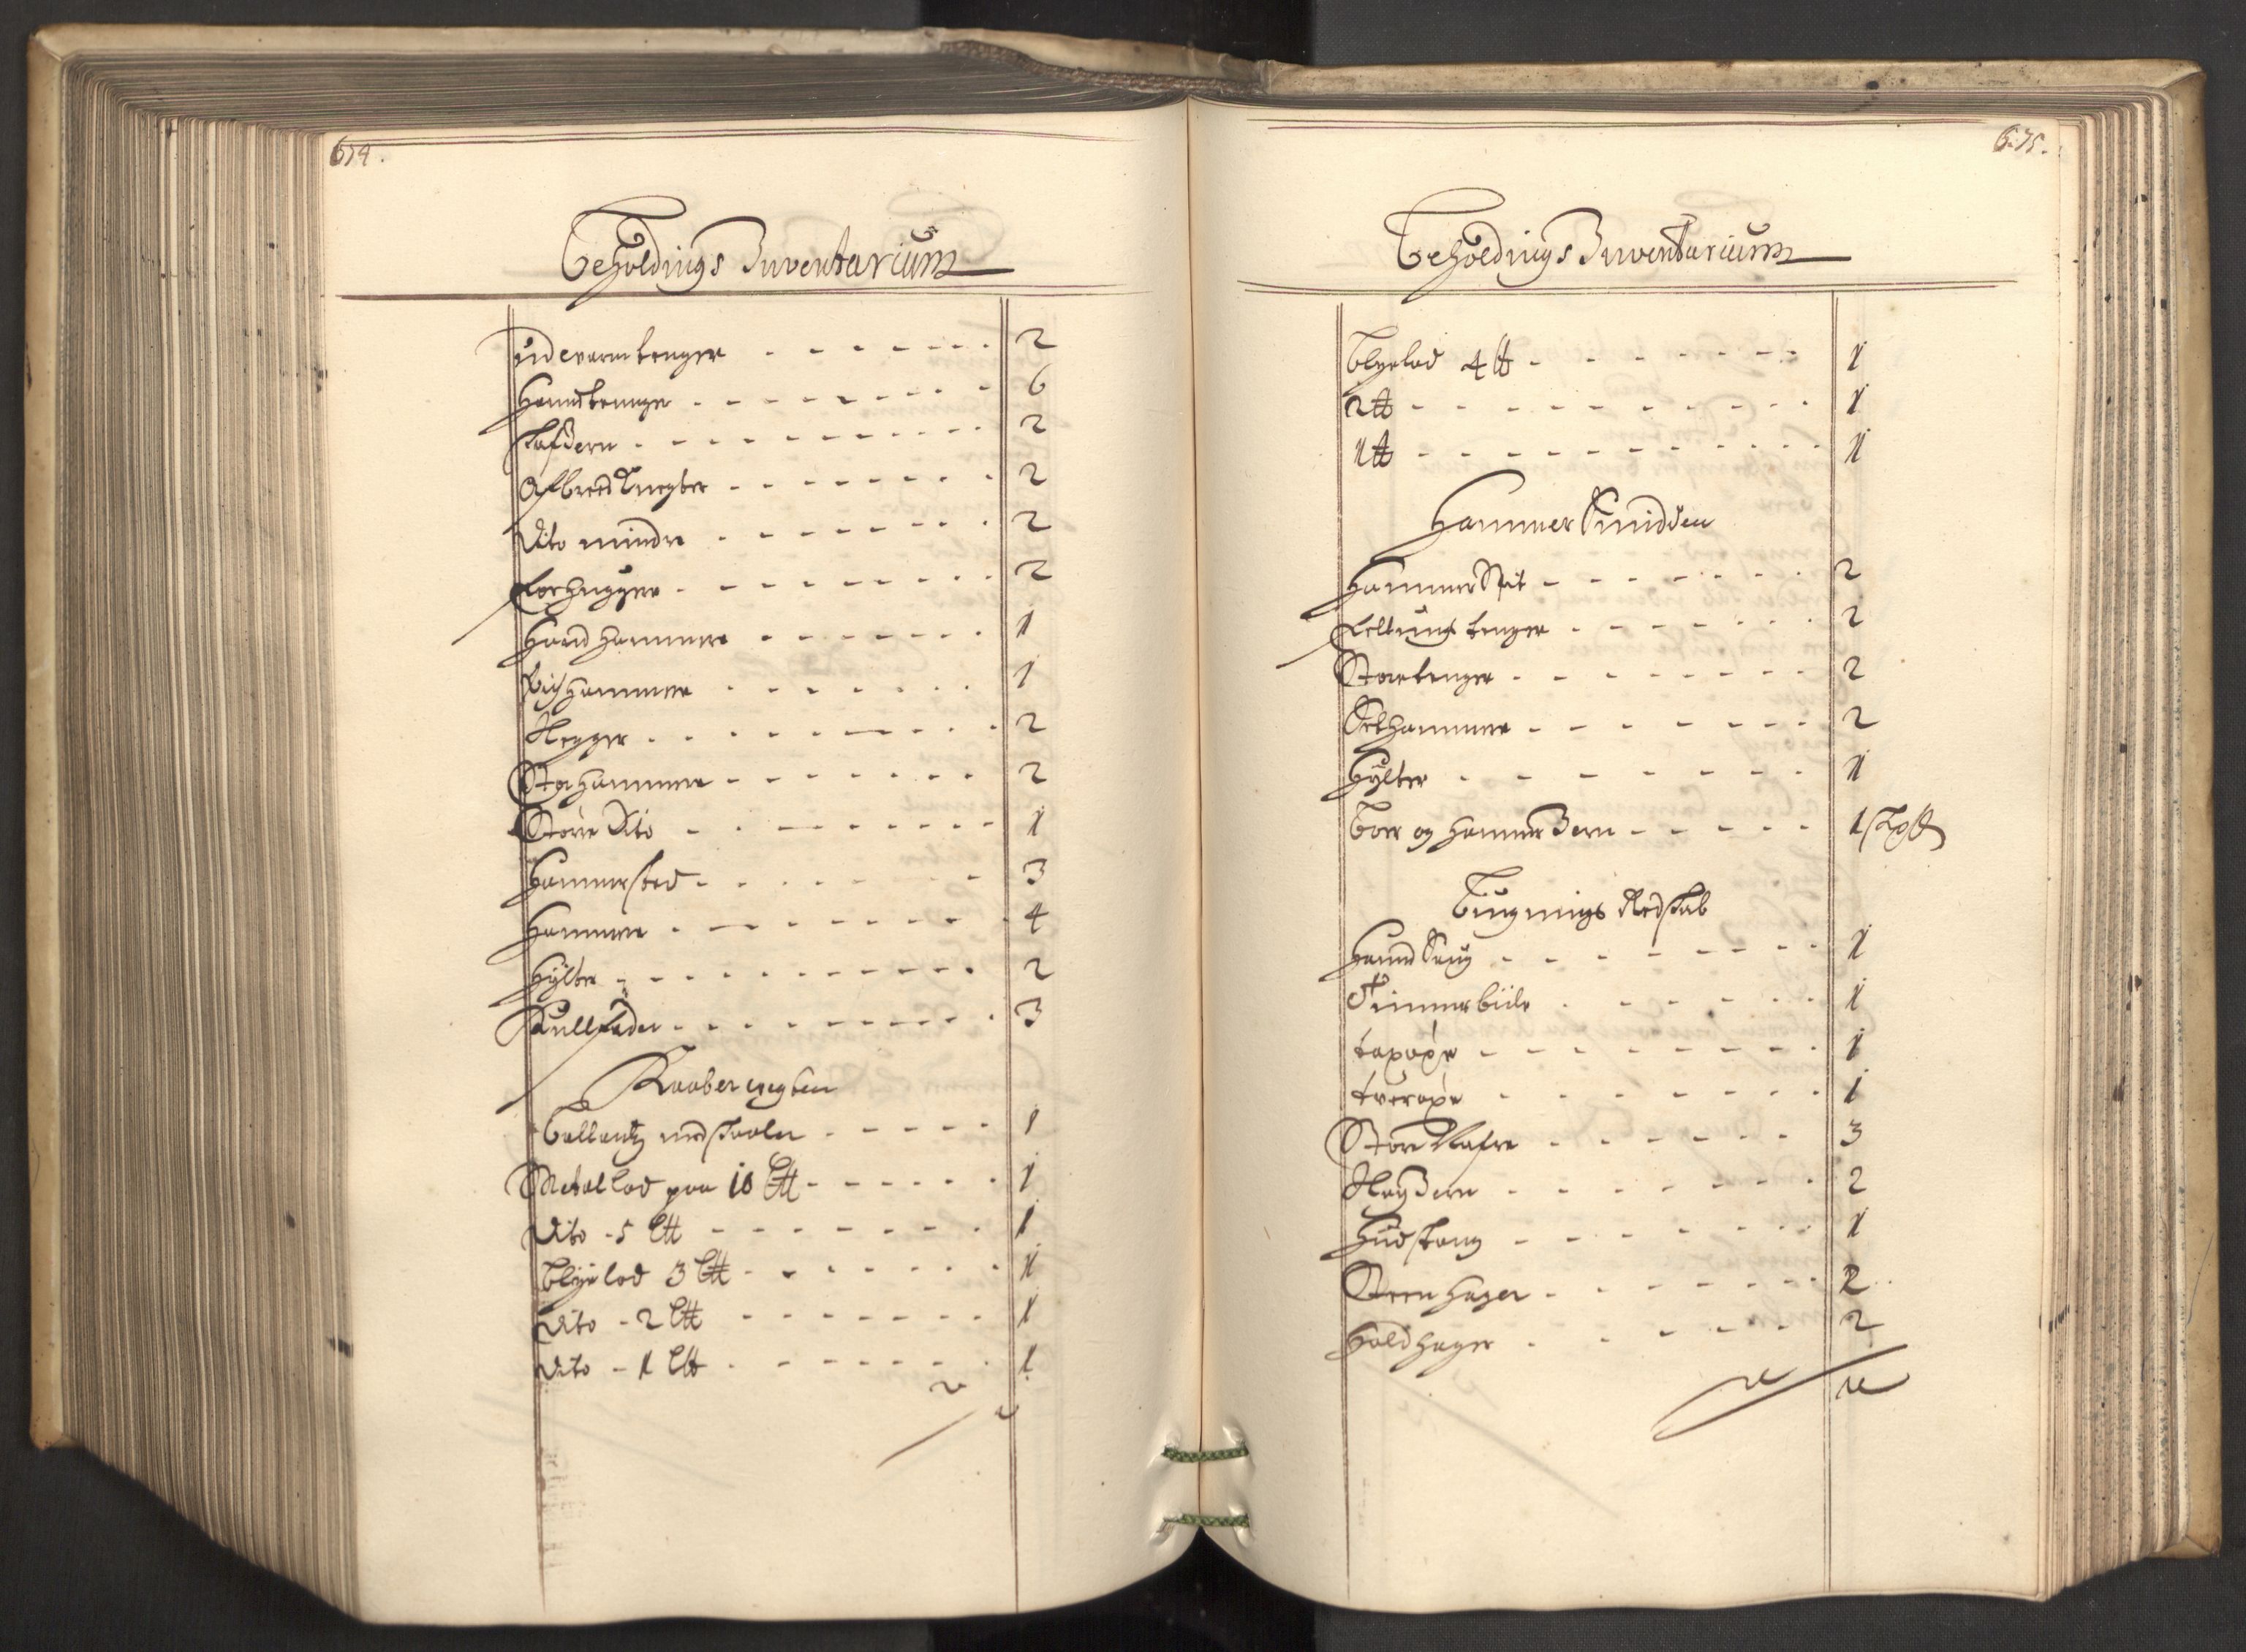 674.
Beholdings Inventarium
udevarm tenger 2
Haandtenger 6
Stafdern 2
Afbred Knegter 2
Dito mindre 2
Forhugger 2
Haand hammer 1
Richhammer 1
Slegger 2
Storhammer 2
Större Dito 1
Hammersted 3
Hammer 4
Hylter 2
Kullfader 3
Kaabervegten
Ballantz med skaaler 1
Metallod paa 10 L℔ 1
Dito - 5 L℔ 1
Blyelod 3 L℔ 1
Dito - 2 L℔ 1
Dito - 1 L℔ 1
675.
Beholdings Inventarium
Blyelod 4 ℔ 1
2 ℔ 1
1 ℔ 1
Hammer Smidden
Hammer Stit 2
tenger 2
Stortenger 2
Sethammer 2
Hylter 1
Boer og Hammer Jern 1 sk℔
Bygnings Redskab
Haand Saug 1
Timmerbiile 1
tapøxe 1
tverøxe 1
Store Nafre 3
Slag Jern 2
Hudstang 1
Steen hager 2
Holdhager 2